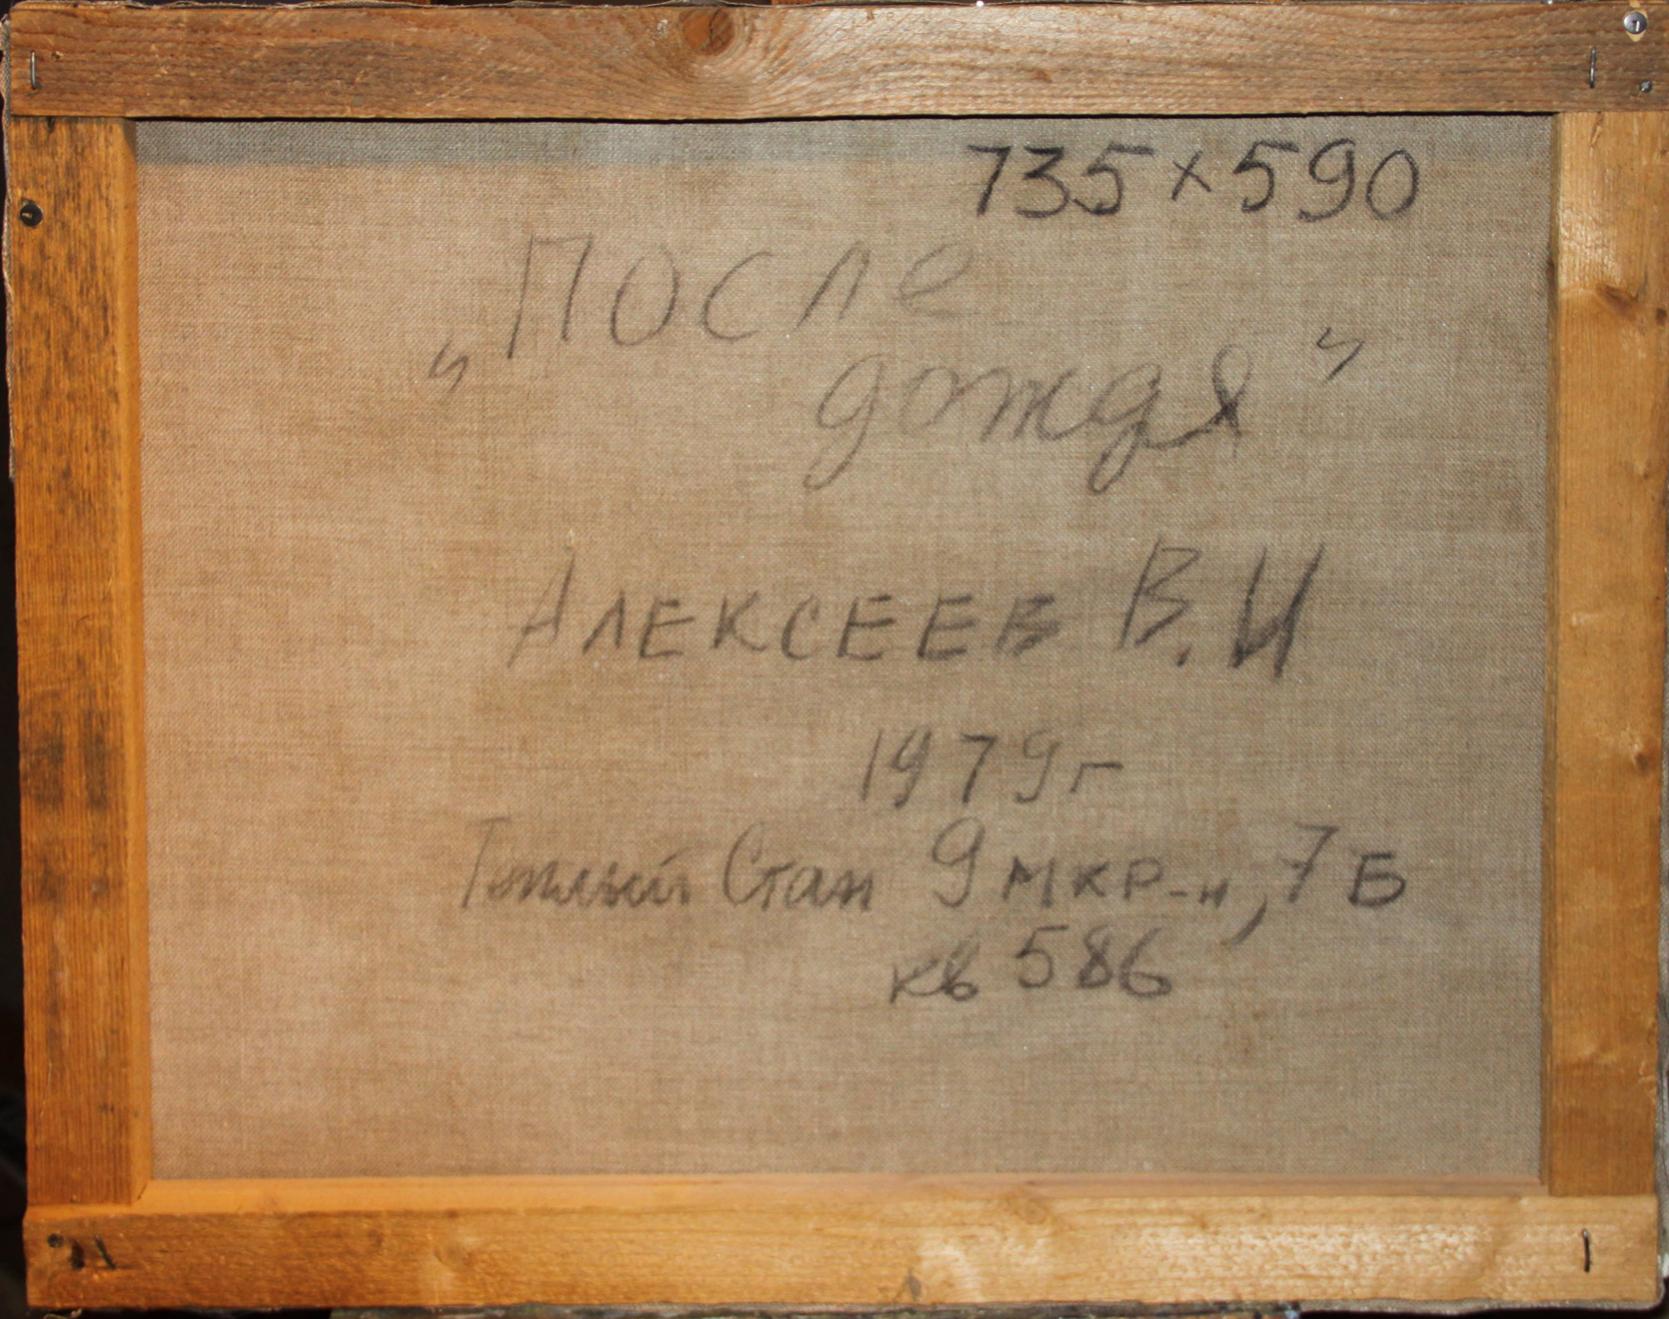 735×590
„После
дождя"
Алексеев В.И
1979г
Теплый Стан 9 мкр-н, 7 Б
кв 586